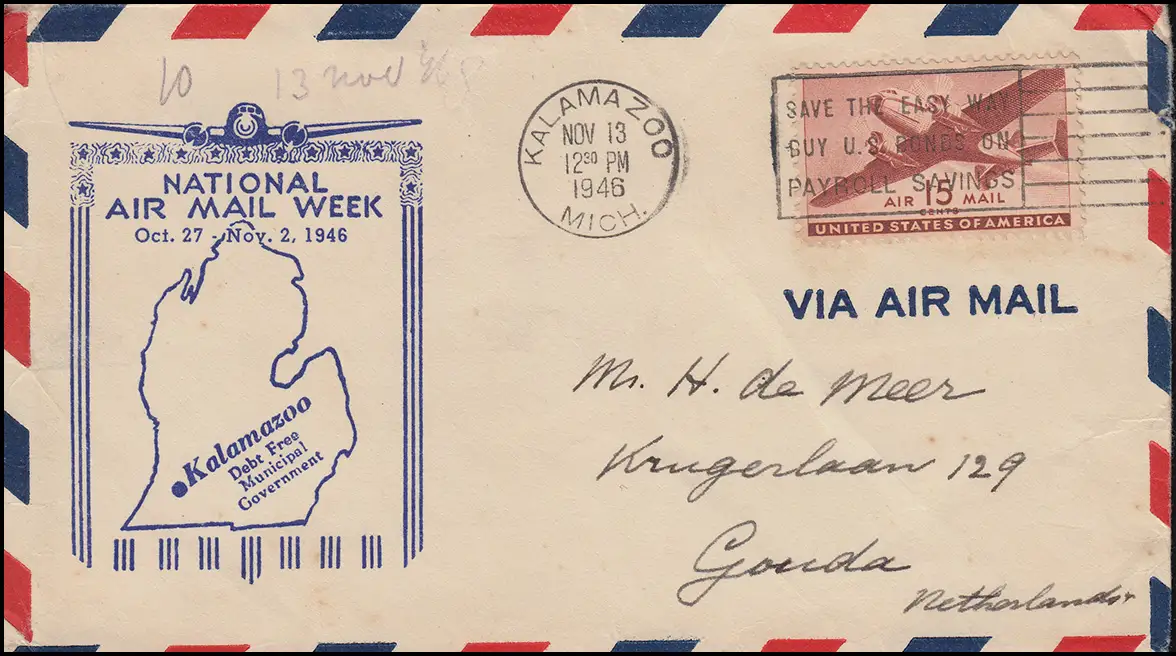 10 13 nov
NATIONAL
AIR MAIL WEEK
Oct. 27 - Nov. 2, 1946
Kalamazoo
Debt Free
Municipal
Government
KALAMAZOO
NOV 13
1230 PM
1946
MICH.
SAVE THE EASY WAY
BUY U.S. BONDS ON
PAYROLL SAVINGS
AIR 15 MAIL
CENTS
UNITED STATES OF AMERICA
VIA AIR MAIL
Mr. H. de Meer
Krugerlaan 129
Gouda
Netherlands